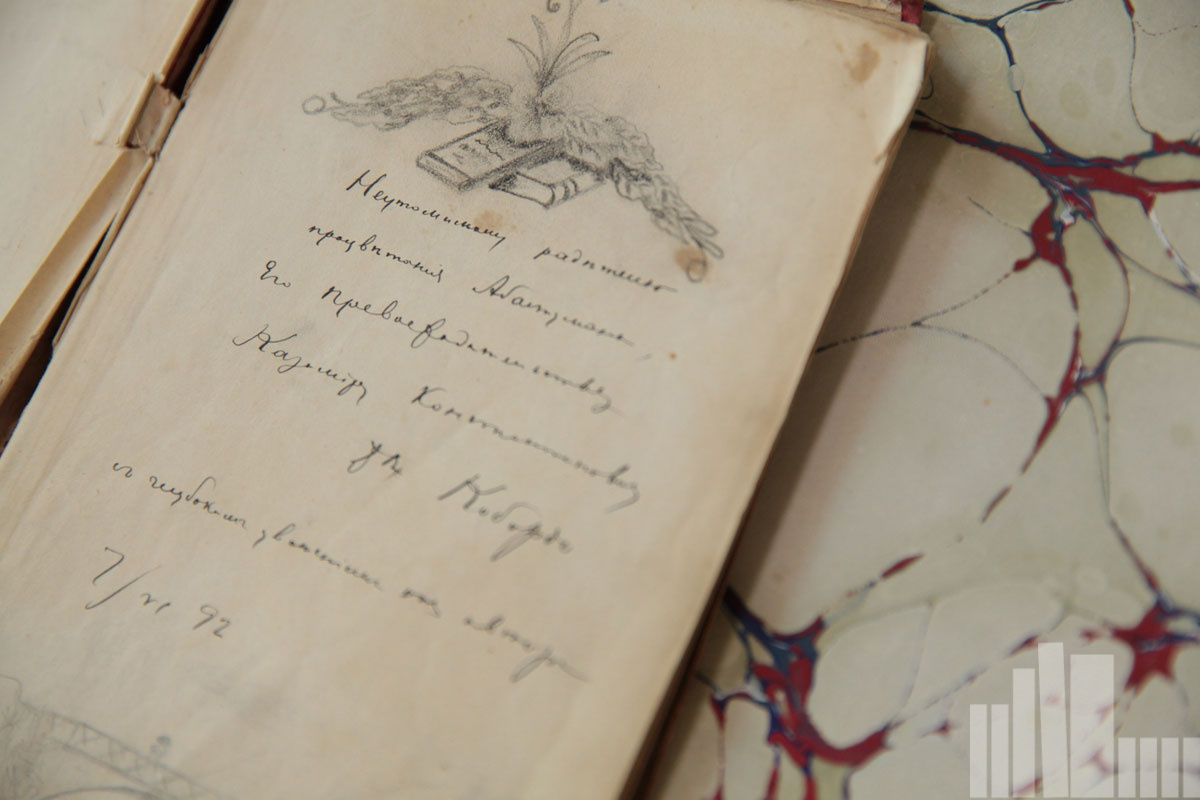 Неутомимому радѣтелю
процвѣтанія Абастумана,
Его Превосходительству
Казиміру Константиновичу
фонъ
съ глубокимъ уваженіемъ отъ
7/VI 92